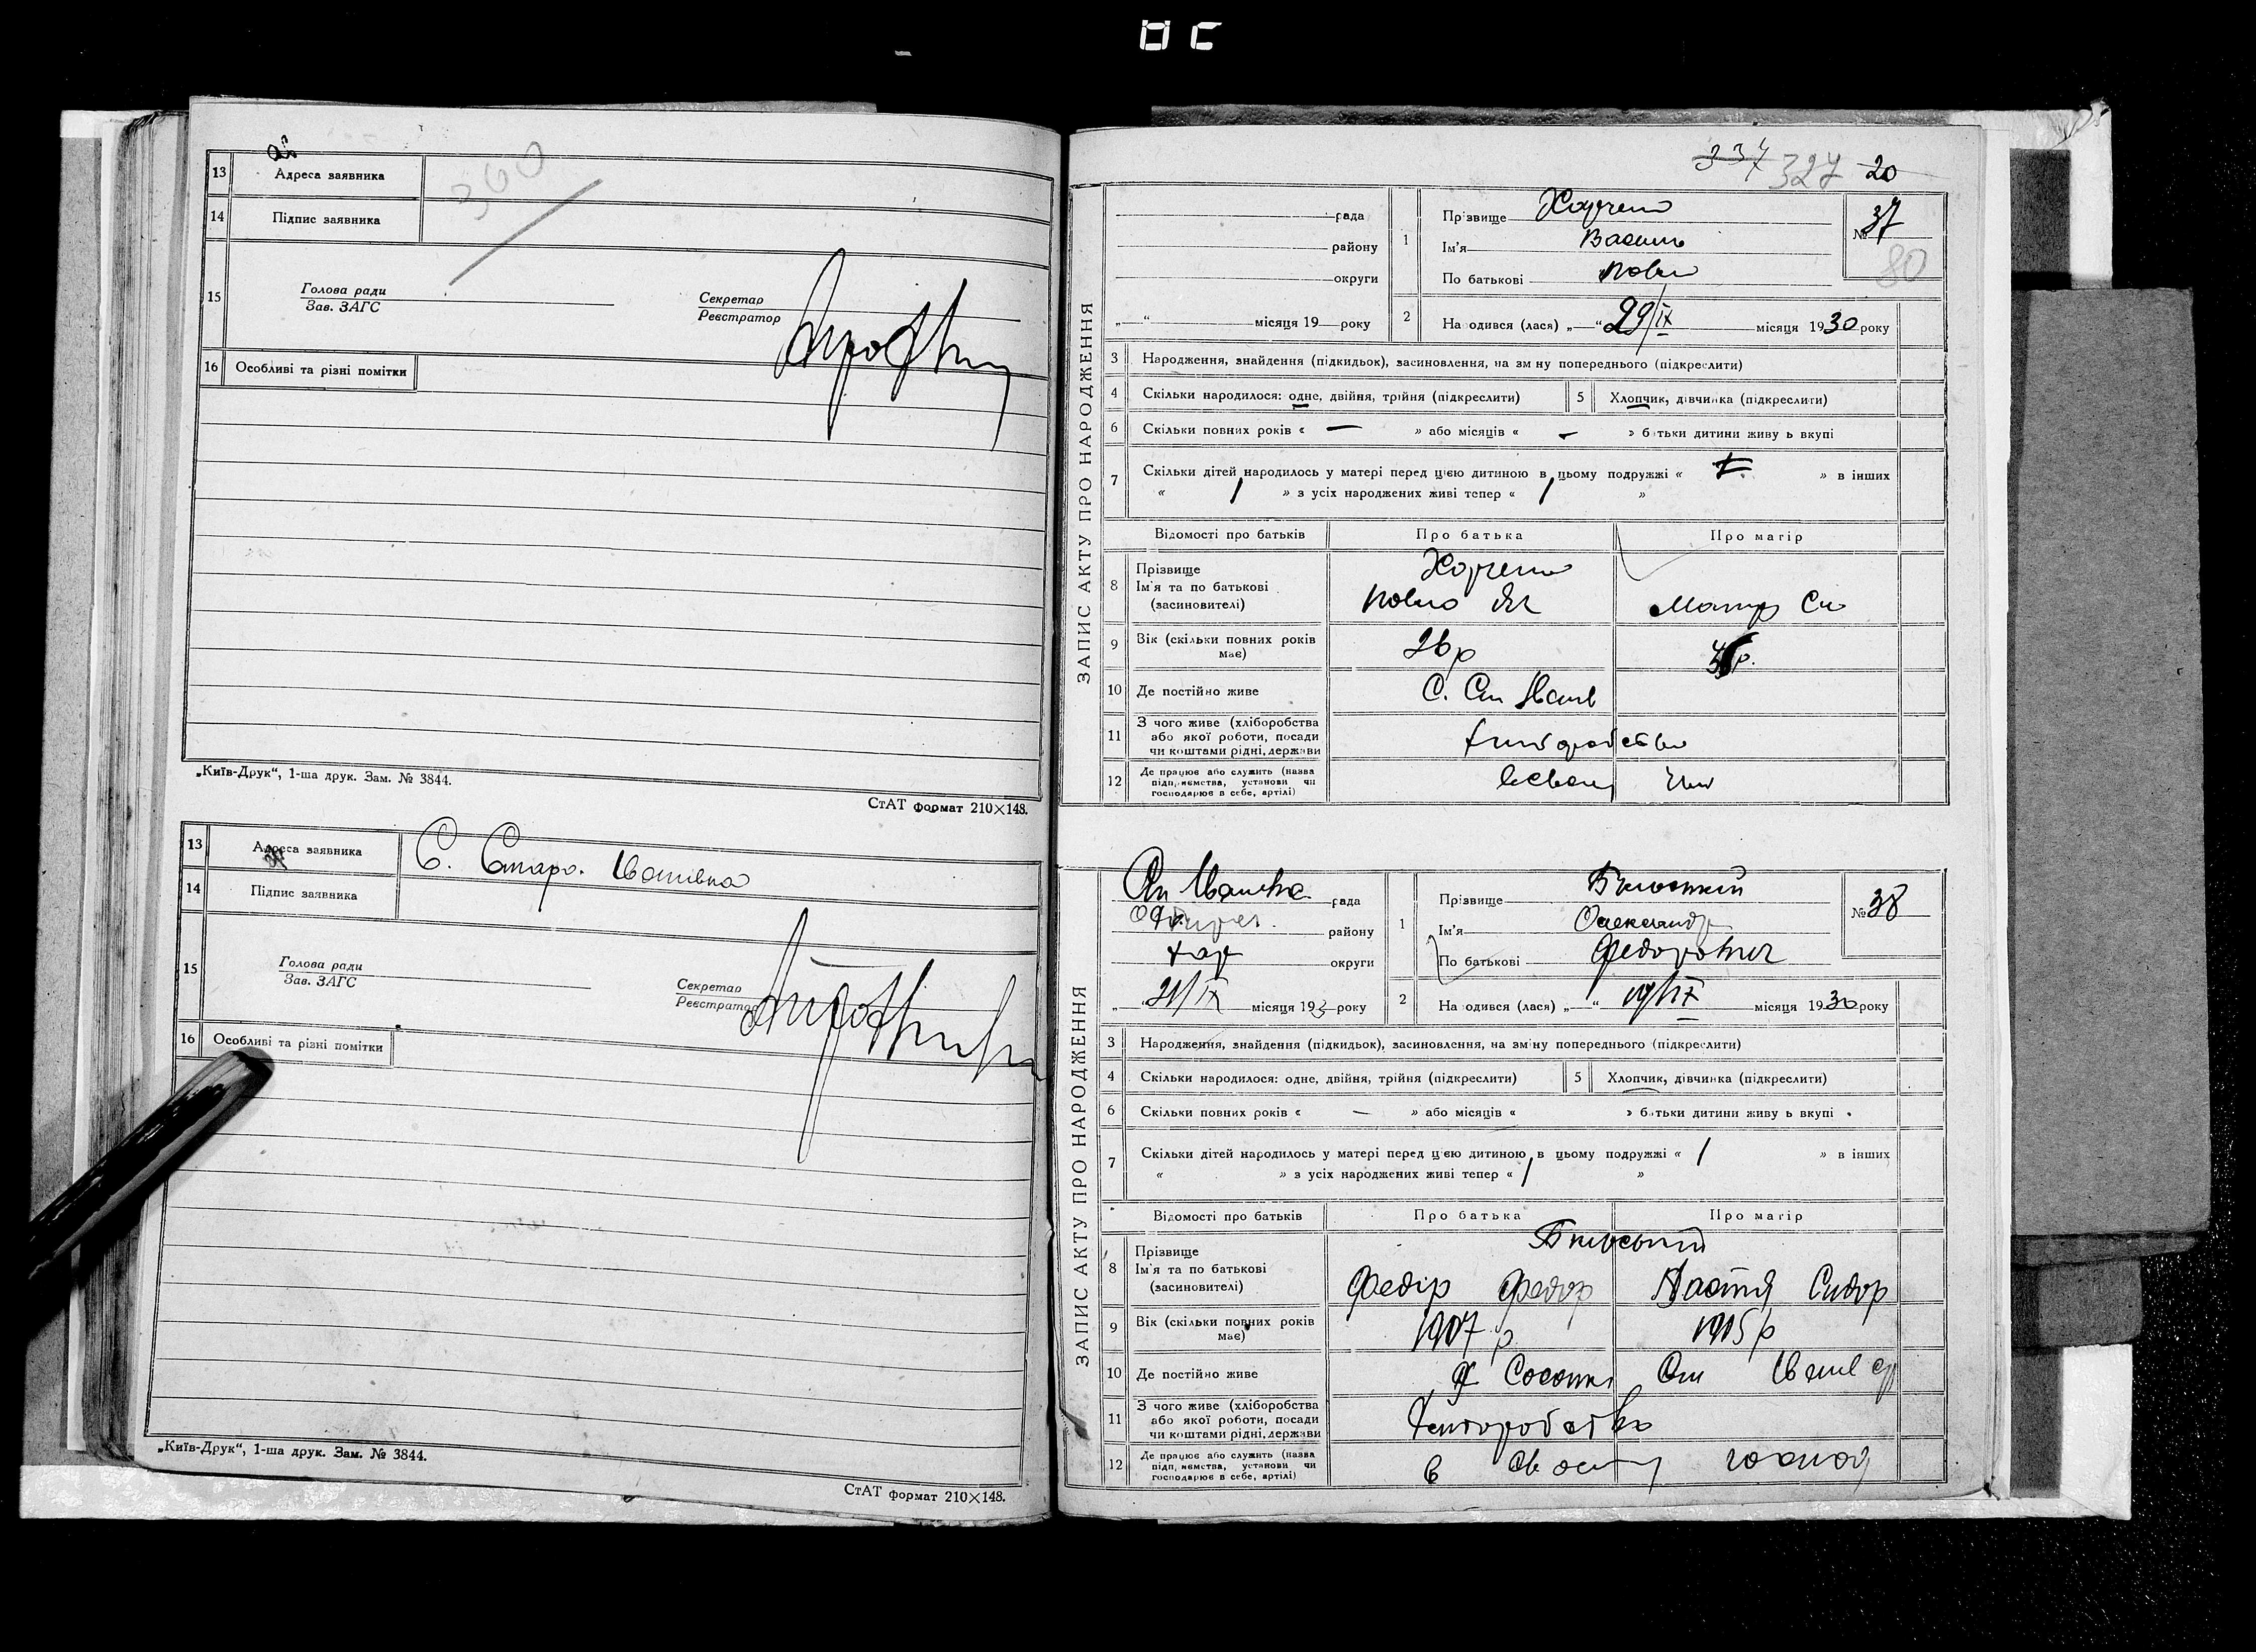 360
13 Адреса заявника
14 Підпис заявника
15 Голова ради
Зав. ЗАГС
Секретар
Реєстратор
16 Особливі та різні помітки
„Київ-Друк“, 1-ша друк. Зам. № 3844.
СтАТ формат 210×148.
13 Адреса заявника С. Старо. Іванівка
14 Підпис заявника
15 Голова ради
Зав. ЗАГС
Секретар
Реєстратор
16 Особливі та різні помітки
„Київ-Друк“, 1-ша друк. Зам. № 3844.
СтАТ формат 210×148.
337 327 20
ЗАПИС АКТУ ПРО НАРОДЖЕННЯ
рада
району
округи
„ “ місяця 19 року
1 Прізвище
Ім'я Василь
По батькові
№ 37
80
2 На одився (лася) „ “ 29/IX місяця 1930 року
3 Народження, знайдення (підкидьок), засиновлення, на зм ну попереднього (підкреслити)
4 Скільки народилося: одне, двійня, трійня (підкреслити) 5 Хлопчик, дівчинка (підкреслити)
6 Скільки повних років « — » або місяців « – » б тьки дитини живу ь вкупі
7 Скільки дітей народилось у матері перед цією дитиною в цьому подружжі « » в інших
« / » з усіх народжених живі тепер « / »
Відомості про батьків Про батька Про матір
8 Прізвище
Ім'я та по батькові
(засиновителі)
9 Вік (скільки повних років має) 26 р
10 Де постійно живе С. Ст Іванів
11 З чого живе (хліборобства
або якої роботи, посади
чи коштами рідні, держави
12 Де працює або служить (назва
підп, иємства, установи чи
господарює в себе, артілі)
ЗАПИС АКТУ ПРО НАРОДЖЕННЯ
Ст Іванівка рада
району
Хар округи
„21/IX місяця 193 року
1 Прізвище
Ім'я Олександр
По батькові Федорович
№ 38
2 На одився (лася) „ “ 19/IX місяця 1930 року
3 Народження, знайдення (підкидьок), засиновлення, на зм ну попереднього (підкреслити)
4 Скільки народилося: одне, двійня, трійня (підкреслити) 5 Хлопчик, дівчинка (підкреслити)
6 Скільки повних років « — » або місяців « » б тьки дитини живу ь вкупі
7 Скільки дітей народилось у матері перед цією дитиною в цьому подружжі « / » в інших
« » з усіх народжених живі тепер « / »
Відомості про батьків Про батька Про матір
8 Прізвище
Ім'я та по батькові Федір Федор Настя Сидор
(засиновителі)
9 Вік (скільки повних років має) 1907 р 1905 р
10 Де постійно живе
11 З чого живе (хліборобства Хліборобство
або якої роботи, посади
чи коштами рідні, держави
12 Де працює або служить (назва
підп, иємства, установи чи
господарює в себе, артілі)